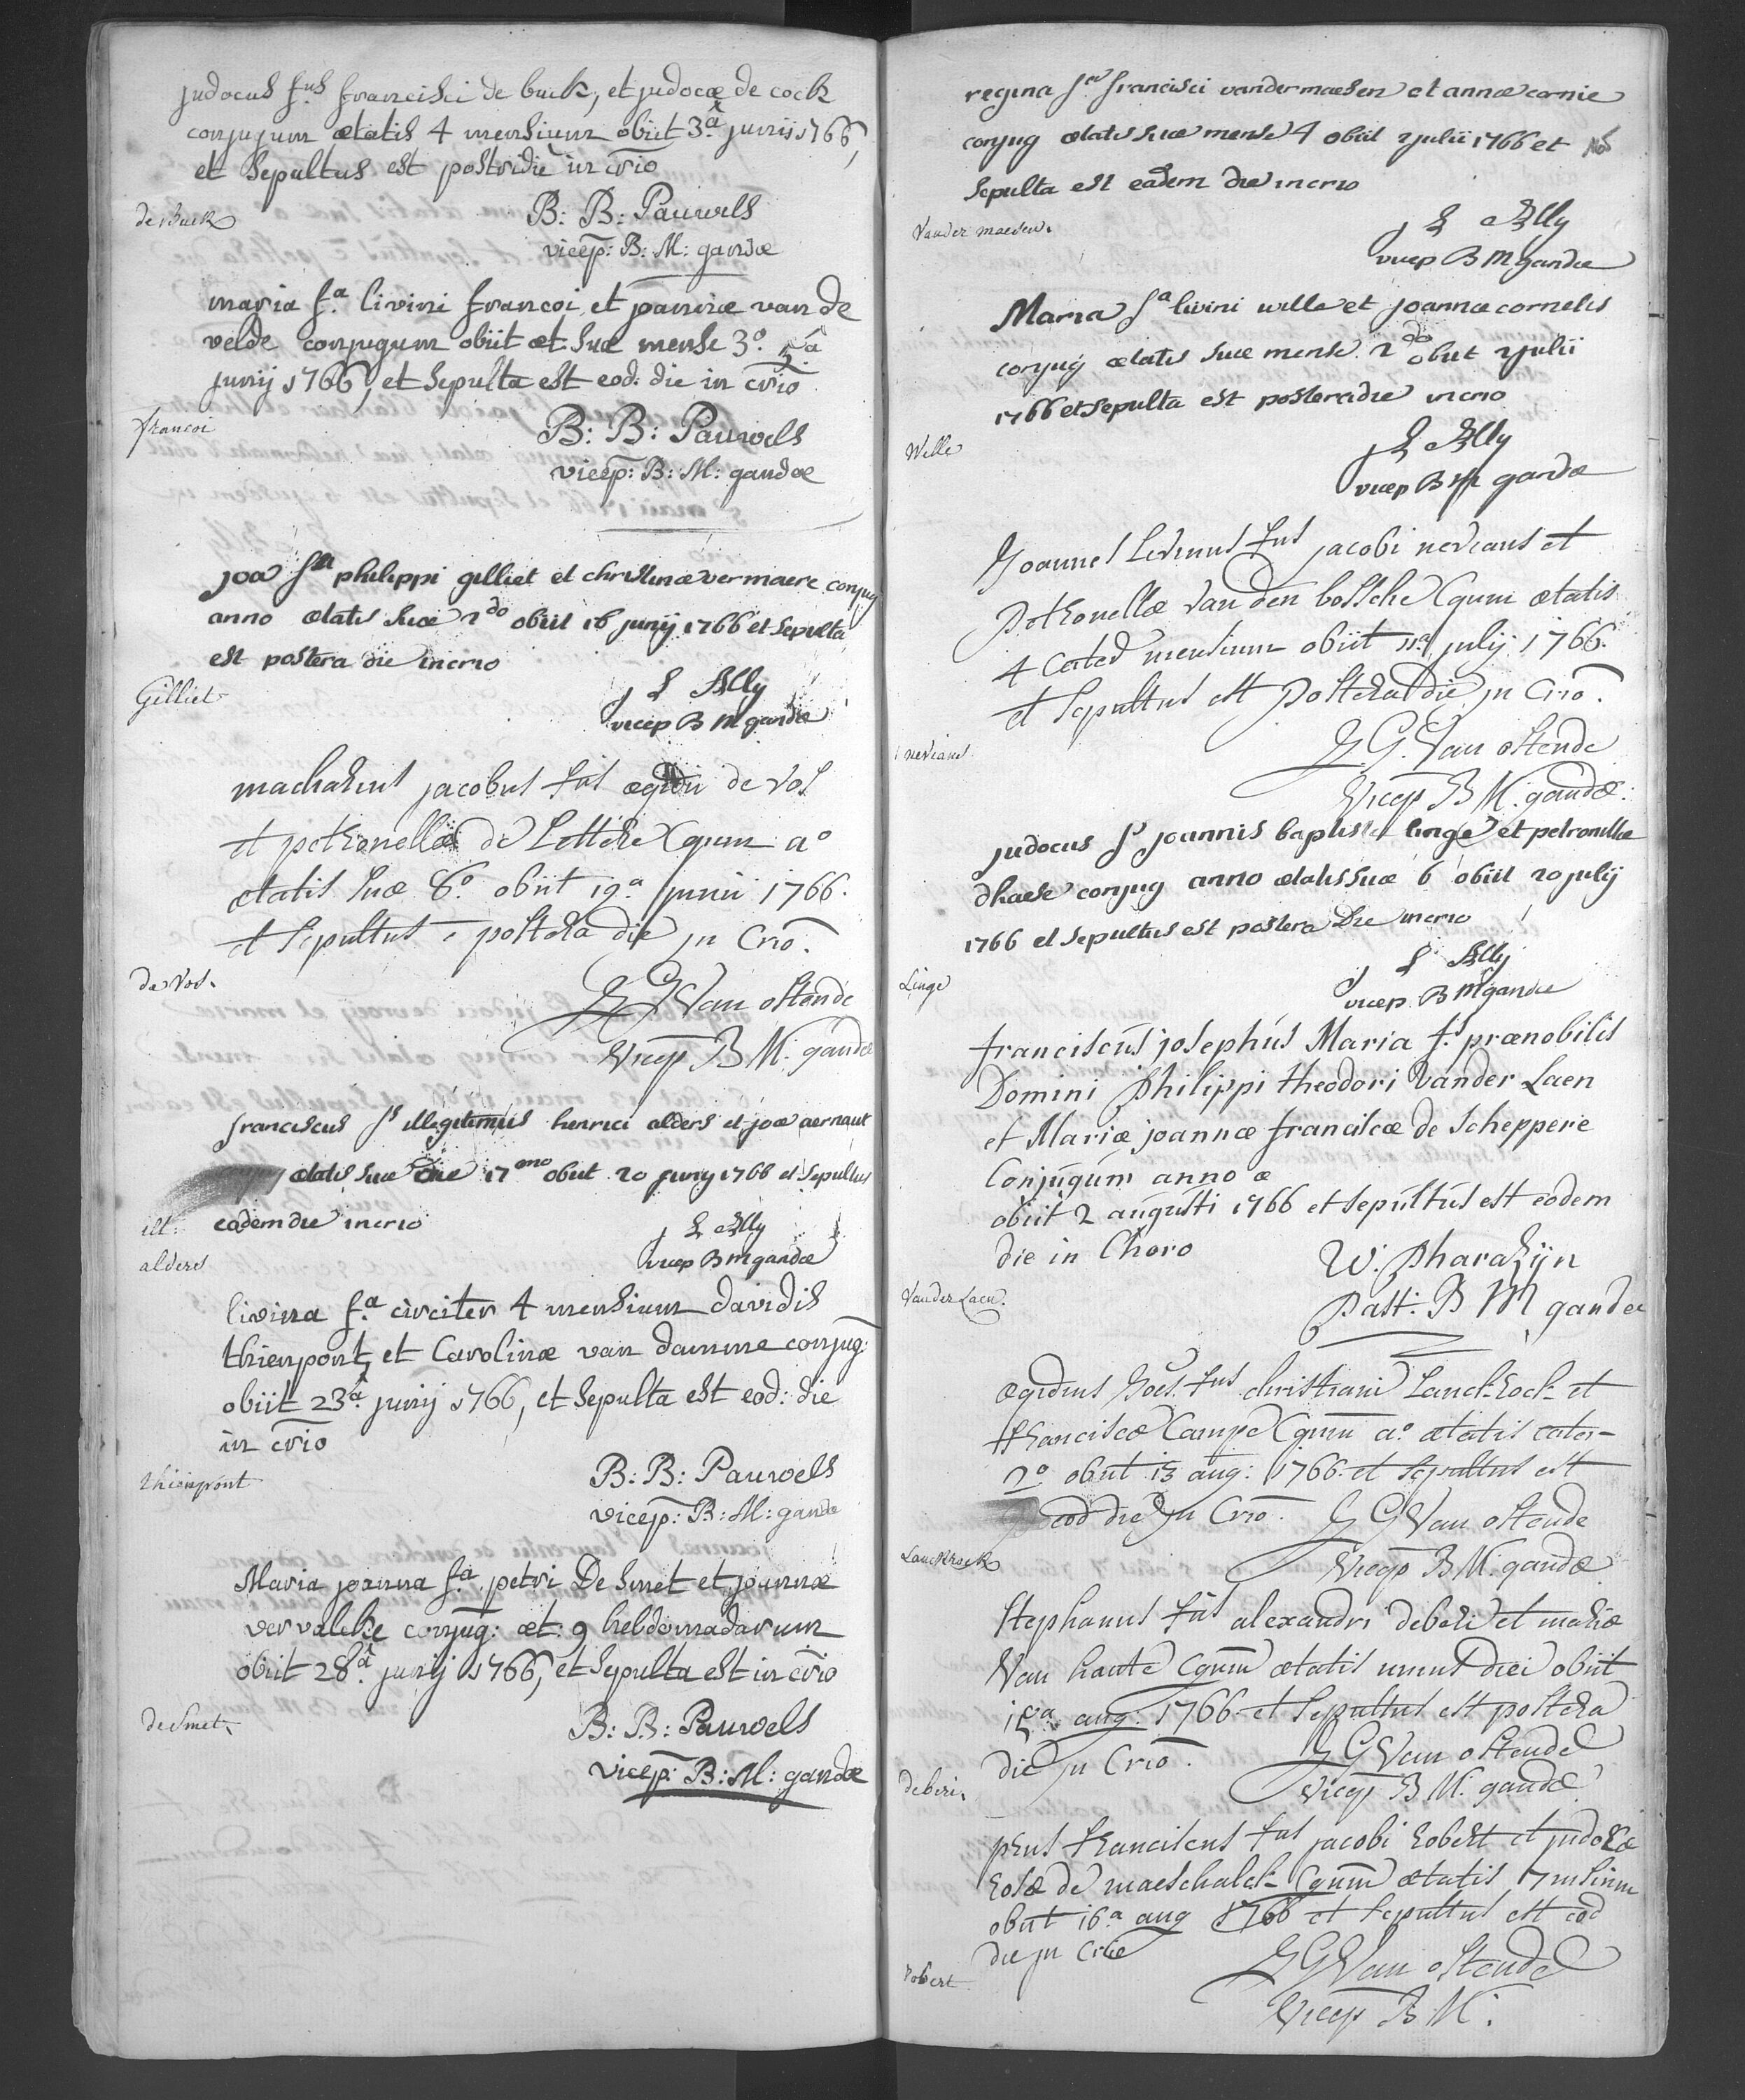 judocus f.us francisci de buck, et judocæ de cock
conjugum ætatis 4 mensium obiit 3.a junij 1766,
et sepultus est postridie in crio
de Buck
B: B: Pauwels
vicep: B: M: gandæ
maria f.a livini francoi, et joannæ van de
velde conjugum obiit æt: suæ mense 3.o 5.a
junij 1766, et sepulta est eod: die in crio
francoi
B: B: Pauwels
vicep: B: M: gandæ
joa f.a philippi gilliet et christinæ vermaere conjug
anno ætatis suæ 2do obiit 16 junij 1766 et sepulta
est postera die in crio
Gilliet
J L Ally
vicep B M gandæ
macharius jacobus fus ægidii de vos
et petronellæ de Lettere Cgum a.o
ætatis suæ 6.o obiit 19.a junii 1766.
et sepultus e postera die in Crio.
de Vos.
G G Van ostende
Vicep B M. gandæ
franciscus f.s illegitimus henrici alders et joæ aernaut
ætatis suæ die 17mo obiit 20 junij 1766 et sepultus
eadem die in crio
ill:
alders
J L Ally
vicep B M gandæ
livina f.a circiter 4 mensium davidis
thienpont, et Carolinæ van damme conjug:
obiit 23.a junij 1766, et sepulta est eod: die
in crio
thienpont
B: B: Pauwels
vicep: B: M: gandæ
Maria joanna f.a petri De Smet et joannæ
vervalcke conjug: æt: 9 hebdomadarum
obiit 28.a junij 1766, et sepulta est in crio
de Smet.
B: B: Pauwels
vicep: B: M: gandæ
regina f.a francisci vandermaesen et annæ cornie
conjug ætatis suæ mense 4 obiit 2 julii 1766 et
sepulta est eadem die in crio
Vander maesen.
J L Ally
vicep B M gandæ
Maria f.a livini wille et joannæ cornelis
conjug ætatis suæ mense 2do obiit 2 julii
1766 et sepulta est postera die in crio
Wille
J L Ally
vicep B M gandæ
Joannes Livinus fus jacobi nevians et
Petronellæ Van den bossche Cgum ætatis
4 Cater mensium obiit 11.a julij 1766.
et sepultus est Postera die in Crio.
nevians
G G. Van ostende
Vicep B M. gandæ.
judocus f.s joannis baptistæ linge et petronillæ
dhaese conjug anno ætatis suæ 6 obiit 20 julij
1766 et sepultus est postera die in crio
Linge
J L Ally
vicep. B M gandæ
franciscus josephus Maria f.s prænobilis
Domini Philippi theodori Vander Laen
et Mariæ joannæ franciscæ de Scheppere
Conjugum anno æ
obiit 2 augusti 1766 et sepultus est eodem
die in Choro
W. Pharazijn
Past: B M gandæ
Vander Laen.
ægidius Joes. fus christiani Lanckrock et
franciscæ Campe Cgum a.o ætatis cater-
2.o obiit 13 aug: 1766. et sepultus est
eod die in Crio.
G G Van ostende
Lanckrock
Vicep B M. gandæ
Stephanus fus alexandri deberi et mariæ
Van haute Cgum ætatis unius diei obiit
15.a aug: 1766 et sepultus est postera
die in Crio.
G G Van ostende
Vicep B M. gandæ
deberi.
prus franciscus fus jacobi Robert et judocæ
Rosæ de maeschalck Cgum ætatis 17 msium
obiit 16.a aug 1766 et sepultus est eod
die in Crio
robert
G G Van ostende
Vicep B M.